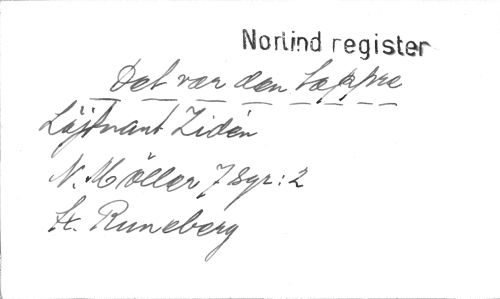 Norlind register
Det var den tappre
Löjtnant Zidén
N. Möller 7 Sgr: 2
Runeberg